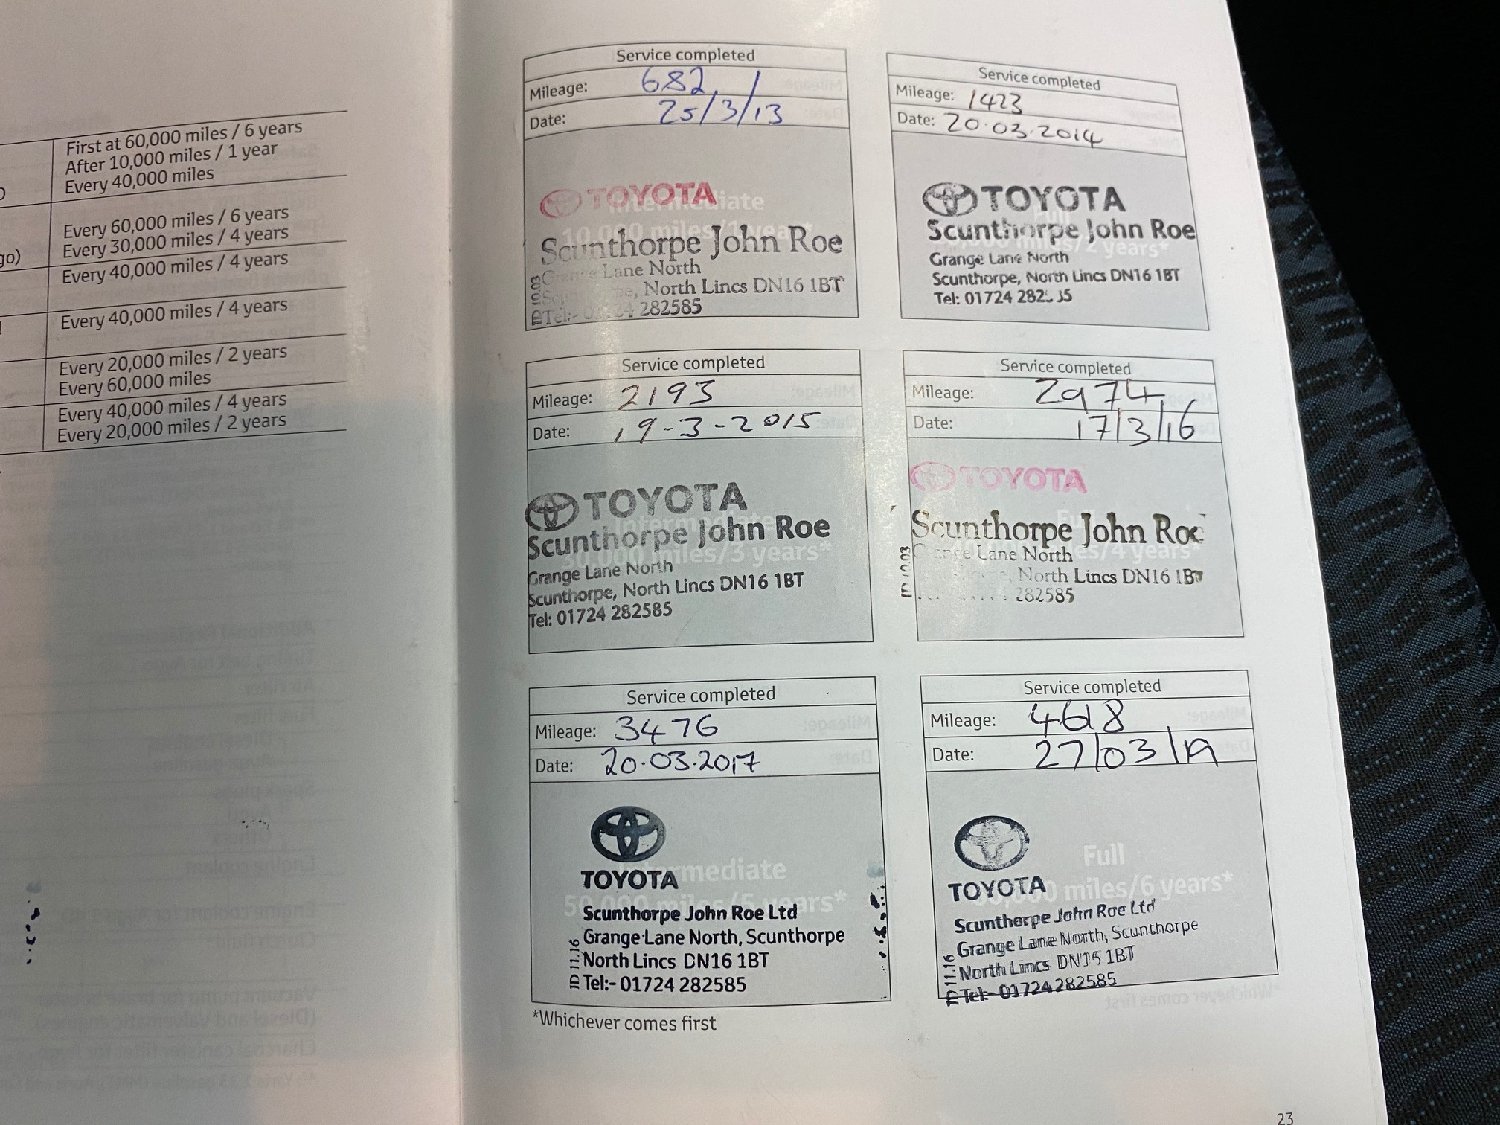 First at 60,000 miles / 6 years
After 10,000 miles / 1 year
Every 40,000 miles
Every 60,000 miles / 6 years
go)
Every 30,000 miles / 4 years
Every 40,000 miles / 4 years
Every 40,000 miles / 4 years
Every 20,000 miles / 2 years
Every 60,000 miles
Every 40,000 miles / 4 years
Every 20,000 miles / 2 years
Service completed
Mileage: 682
Date: 25/3/13
TOYOTA
Scunthorpe John Roe
Grange Lane North
North Lincs DN16 1BT
282585
Service completed
Mileage: 1423
Date: 20.03.2014
TOYOTA
Scunthorpe John Roe
Grange Lane North
Scunthorpe, North Lincs DN16 1BT
Tel: 01724
Service completed
Mileage: 2193
Date: 19-3-2015
TOYOTA
Scunthorpe John Roe
30,000 miles/3 years*
Grange Lane North
Scunthorpe, North Lincs DN16 1BT
Tel: 01724 282585
Service completed
Mileage: 2974
Date: 17/3/16
TOYOTA
Scunthorpe John Roe
Lane North
North Lincs DN16 1BT
282585
Service completed
Mileage: 3476
Date: 20.03.2017
TOYOTA
Intermediate
50,000 miles/5 years*
Scunthorpe John Roe Ltd
Grange Lane North, Scunthorpe
North Lincs DN16 1BT
Tel:- 01724 282585
ID 11.16
Service completed
Mileage: 4618
Date: 27/03/19
TOYOTA
Full
60,000 miles/6 years*
Scunthorpe John Roe Ltd
Grange Lane North, Scunthorpe
North Lincs DN15 1BT
Tel:- 01724 282585
ID 11.16
*Whichever comes first
23